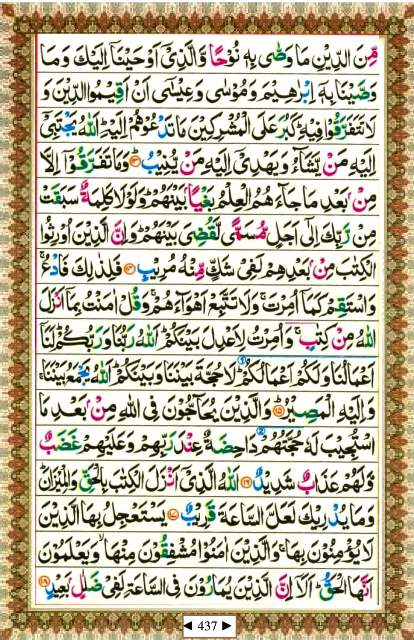 مِّنَ الدِّیْنِ مَا وَصّٰی بِهٖ نُوْحًا وَّالَّذِیْۤ اَوْحَیْنَاۤ اِلَیْكَ وَمَا
وَصَّیْنَا بِهٖۤ اِبْرٰهِیْمَ وَمُوْسٰی وَعِیْسٰۤی اَنْ اَقِیْمُوا الدِّیْنَ وَ
لَا تَتَفَرَّقُوْا فِیْهِ ؕ كَبُرَ عَلَی الْمُشْرِكِیْنَ مَا تَدْعُوْهُمْ اِلَیْهِ ؕ اَللّٰهُ یَجْتَبِیْۤ
اِلَیْهِ مَنْ یَّشَآءُ وَیَهْدِیْۤ اِلَیْهِ مَنْ یُّنِیْبُ ﴿۱۳﴾ وَمَا تَفَرَّقُوْۤا اِلَّا
مِنْۢ بَعْدِ مَا جَآءَهُمُ الْعِلْمُ بَغْیًۢا بَیْنَهُمْ ؕ وَلَوْلَا كَلِمَةٌ سَبَقَتْ
مِنْ رَّبِّكَ اِلٰۤی اَجَلٍ مُّسَمًّی لَّقُضِیَ بَیْنَهُمْ ؕ وَاِنَّ الَّذِیْنَ اُوْرِثُوا
الْكِتٰبَ مِنْۢ بَعْدِهِمْ لَفِیْ شَكٍّ مِّنْهُ مُرِیْبٍ ﴿۱۴﴾ فَلِذٰلِكَ فَادْعُ ۚ
وَاسْتَقِمْ كَمَاۤ اُمِرْتَ ۚ وَلَا تَتَّبِعْ اَهْوَآءَهُمْ ۚ وَقُلْ اٰمَنْتُ بِمَاۤ اَنْزَلَ
اللّٰهُ مِنْ كِتٰبٍ ۚ وَاُمِرْتُ لِاَعْدِلَ بَیْنَكُمْ ؕ اَللّٰهُ رَبُّنَا وَرَبُّكُمْ ؕ لَنَاۤ
اَعْمَالُنَا وَلَكُمْ اَعْمَالُكُمْ ؕ لَا حُجَّةَ بَیْنَنَا وَبَیْنَكُمْ ؕ اَللّٰهُ یَجْمَعُ بَیْنَنَا ۚ
وَاِلَیْهِ الْمَصِیْرُ ﴿۱۵﴾ وَالَّذِیْنَ یُحَآجُّوْنَ فِی اللّٰهِ مِنْۢ بَعْدِ مَا
اسْتُجِیْبَ لَهٗ حُجَّتُهُمْ دَاحِضَةٌ عِنْدَ رَبِّهِمْ وَعَلَیْهِمْ غَضَبٌ
وَّلَهُمْ عَذَابٌ شَدِیْدٌ ﴿۱۶﴾ اَللّٰهُ الَّذِیْۤ اَنْزَلَ الْكِتٰبَ بِالْحَقِّ وَالْمِیْزَانَ ؕ
وَمَا یُدْرِیْكَ لَعَلَّ السَّاعَةَ قَرِیْبٌ ﴿۱۷﴾ یَسْتَعْجِلُ بِهَا الَّذِیْنَ
لَا یُؤْمِنُوْنَ بِهَا ۚ وَالَّذِیْنَ اٰمَنُوْا مُشْفِقُوْنَ مِنْهَا ۙ وَیَعْلَمُوْنَ
اَنَّهَا الْحَقُّ ؕ اَلَاۤ اِنَّ الَّذِیْنَ یُمَارُوْنَ فِی السَّاعَةِ لَفِیْ ضَلٰلٍۭ بَعِیْدٍ ﴿۱۸﴾
◄ 437 ►